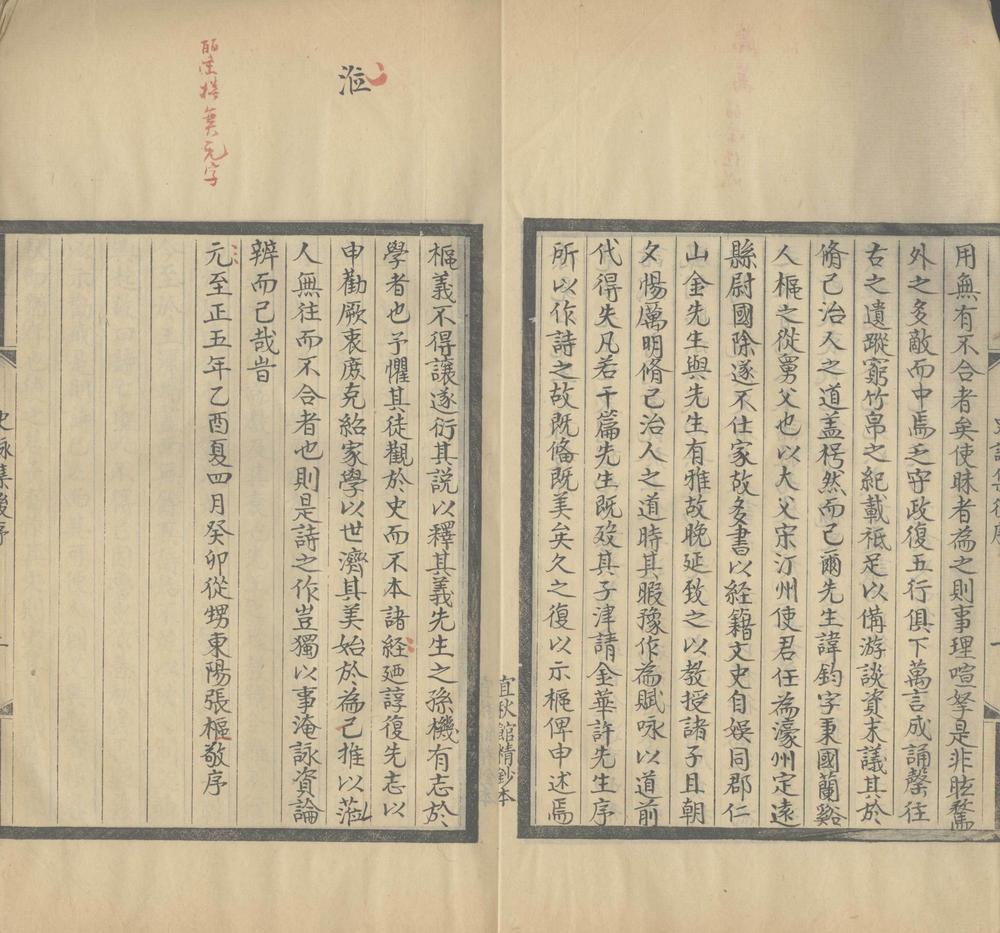 用無有不合者矣使昧者為之則事理喧拏是非眩騖
外之多敵而中焉乏守政復五行俱下萬言成誦馨往
古之遺蹤窮竹帛之紀載祗足以備游談資末議其於
脩己治人之道盖栲然而已爾先生諱鈞字秉國蘭谿
人樞之從舅父也以大父宋汀州使君任為濠州定遠
縣尉國除遂不仕家故多書以経籍文史自娛同郡仁
山金先生與先生有雅故晚延致之以教授諸子且朝
夕惕厲明脩己治人之道時其暇豫作為賦咏以道前
代得失凡若干篇先生既歿其子津請金華許先生序
所以作詩之故既備既美矣久之復以示樞俾申述焉
宜秋館精鈔本
樞義不得讓遂衍其説以釋其義先生之孫機有志於
學者也予懼其徒觀於史而不本諸経廼諄復先志以
申勸厥衷庶克紹家學以世濟其美始於為己推以蒞
人無往而不合者也則是詩之作豈獨以事淹詠資論
辨而已哉旹
元至正五年乙酉夏四月癸卯從甥東陽張樞敬序
史詠集後序
二
涖
皕宋樓無元字